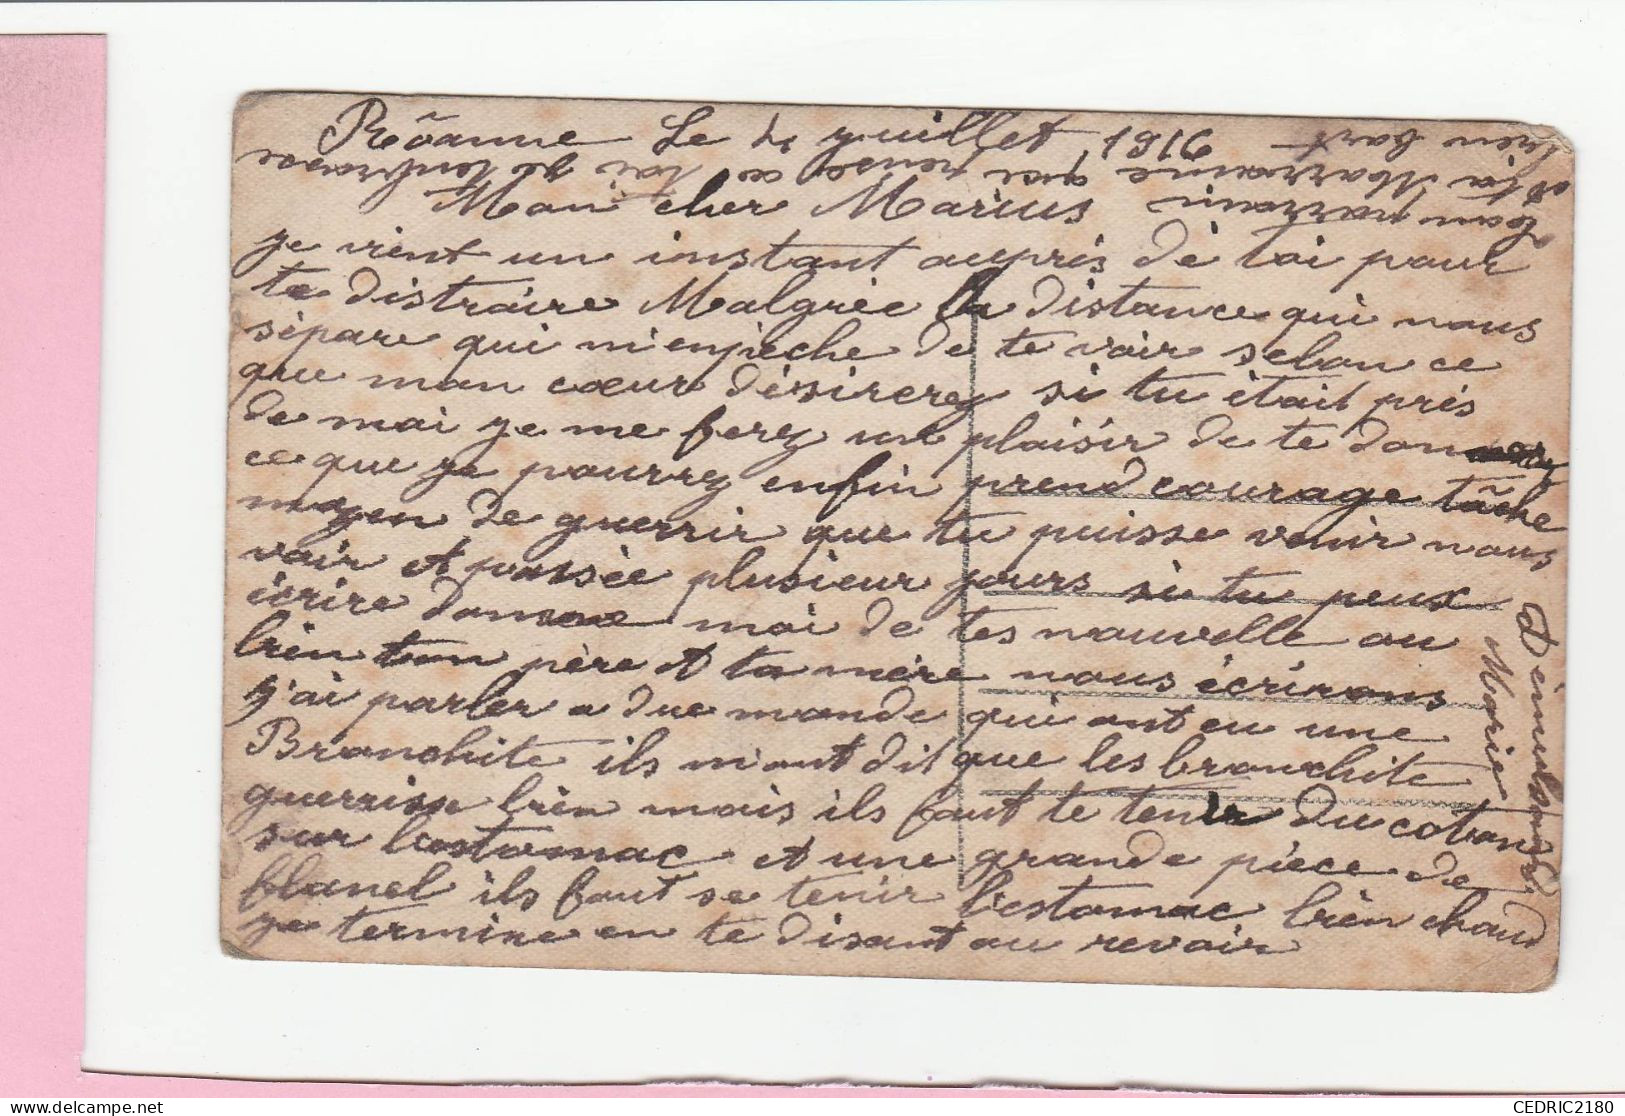 Rôanne Le 4 Juillet 1916
Mon cher Marius
je vient un instant auprés dè toi pour
te distraire Malgrèe la distance qui nous
sépare qui m'enpèche de te voir selon ce
que mon cœur dèsirerez si tu ètait près
de moi je me ferez un plaisir de te donnerz
ce que je pourrez enfin prend courage tâche
moyen de guerrir que tu puisse venir nous
voir et passèe plusieur jours si tu peux
ècrire donne moi de tes nouvelle ou
bièn ton père et ta mère nous ècrirons
j'ai parler a due monde qui ont eu une
Bronchite ils m'ont dit que les bronchite
guerrisse bièn mais ils faut te tenir du coton
sur l'estomac et une grande pièce de
flanel ils faut se tenir l'estomac bièn chaud
je termine en te disant au revoir
ton parrain
et ta Marraine qui pense a toi et t'embrasse
bien fort
Marie
CEDRIC2180